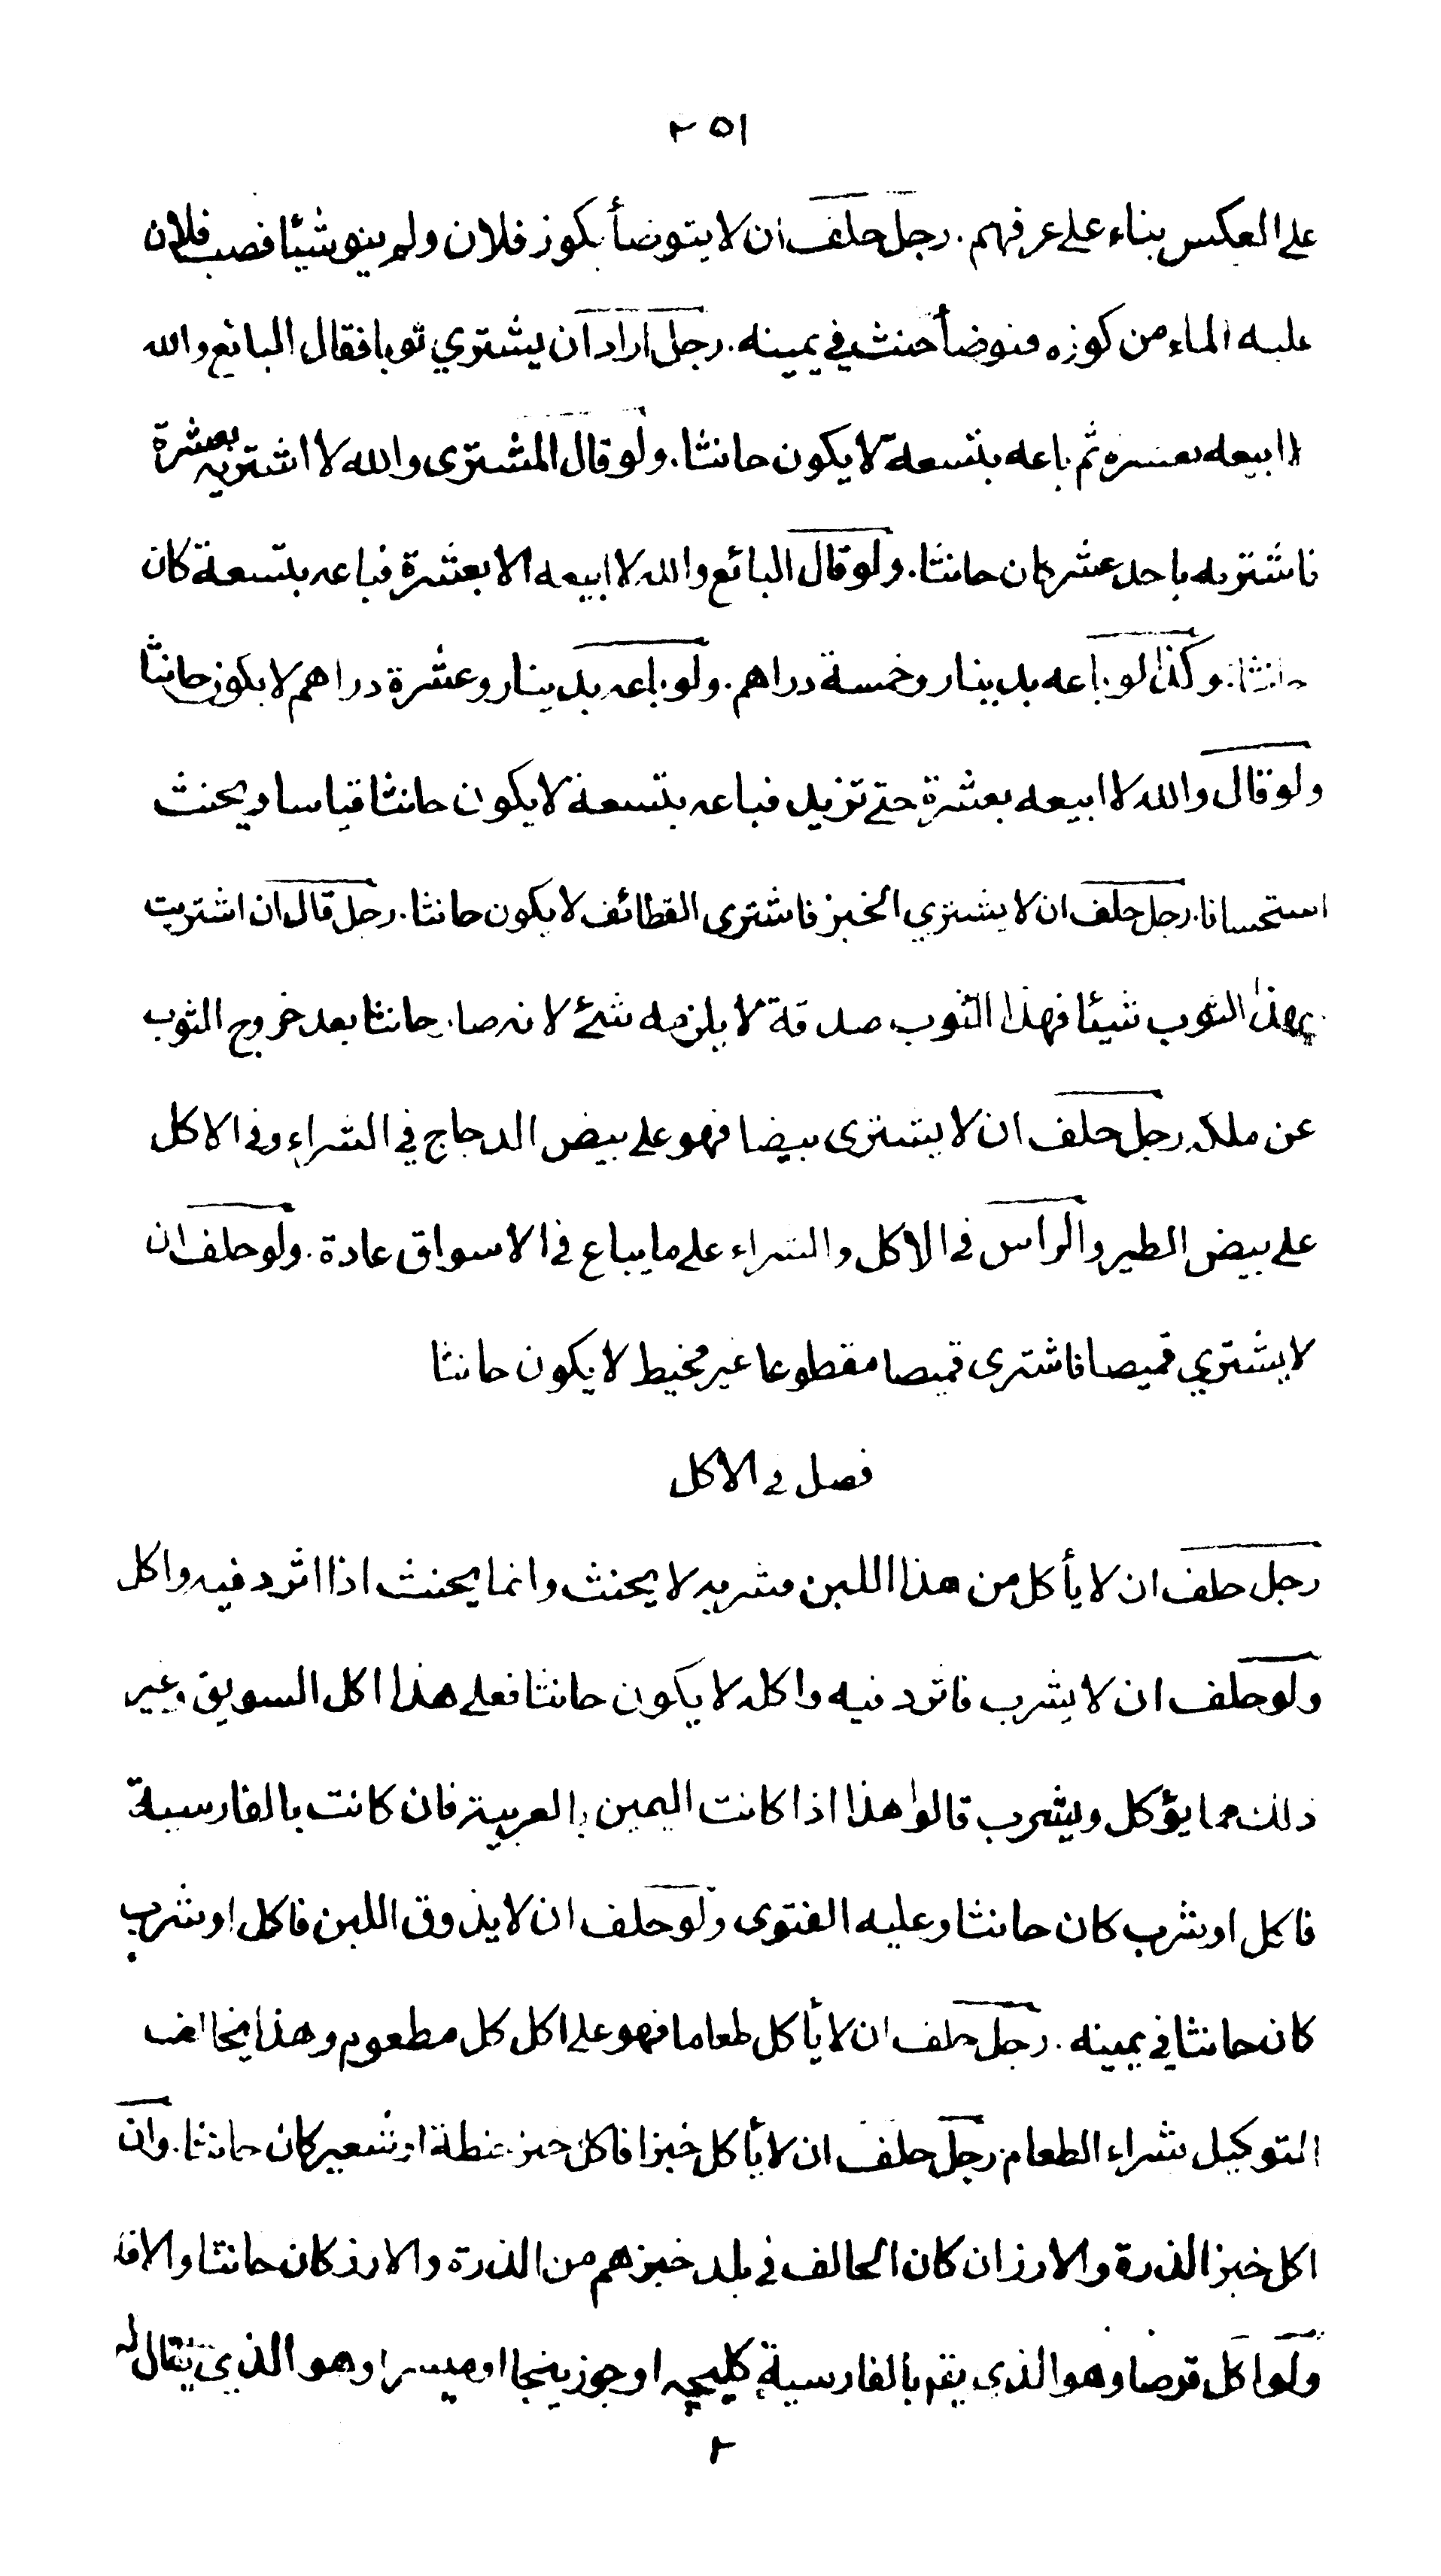 ٢٥١
على العكس بناء على عرفهم. رجل حلف ان لا يتوضأ بكوز فلان ولم ينو شيئا فصب فلان
عليه الماء من كوزه فتوضأ حنث في يمينه. رجل اراد ان يشتري ثوبا فقال البائع والله
لا ابيعه بعشرة ثم باعه بتسعة لا يكون حانثا. ولو قال المشترى والله لا اشتريه بعشرة
فاشتريه باحد عشر كان حانثا. ولو قال البائع والله لا ابيعه الا بعشرة فباعه بتسعة كان
حانثا. وكذا لو باعه بدينار وخمسة دراهم. ولو باعه بدينار وعشرة دراهم لا يكون حانثا
ولو قال والله لا ابيعه بعشرة حتى تزيد فباعه بتسعة لا يكون حانثا قياسا ويحنث
استحسانا. رجل حلف ان لا يشتري الخبز فاشترى القطائف لا يكون حانثا. رجل قال ان اشتريت
بهذا الثوب شيئا فهذا الثوب صدقة لا يلزمه شئ لانه صار حانثا بعد خروج الثوب
عن ملكه رجل حلف ان لا يشترى بيضا فهو على بيض الدجاج في الشراء وفى الاكل
على بيض الطير والراس فى الاكل والشراء على ما يباع فى الاسواق عادة. ولو حلف ان
لا يشتري قميصا فاشترى قميصا مقطوعا غير مخيط لا يكون حانثا
فصل فى الاكل
رجل حلف ان لا يأكل من هذا اللبن فشربه لا يحنث وانما يحنث اذا اثرد فيه واكل
ولو حلف ان لا يشرب فاثرد فيه واكله لا يكون حانثا فعلى هذا اكل السويق وغير
ذلك مما يؤكل ويشرب قالوا هذا اذا كانت اليمين بالعربية فان كانت بالفارسية
فاكل او شرب كان حانثا وعليه الفتوى ولو حلف ان لا يذوق اللبن فاكل او شرب
كان حانثا في يمينه. رجل حلف ان لا يأكل طعاما فهو على اكل كل مطعوم وهذا يخالف
التوكيل بشراء الطعام رجل حلف ان لا يأكل خبزا فاكل خبز حنطة او شعير كان حانثا. وان
اكل خبز الذرة والارز ان كان الحالف في بلد خبزهم من الذرة والارز كان حانثا والا فلا
ولو اكل قرصا وهو الذى يقم بالفارسية كليچه او جوزينجا او ميسرا وهو الذي يقال له
٢